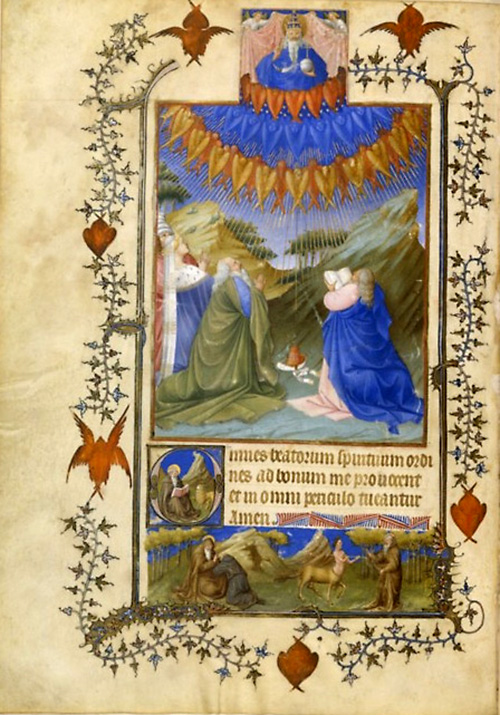 Omnes beatorum spirituum ordi
nes ad bonum me prouocent
et in omni periculo tueantur
Amen.